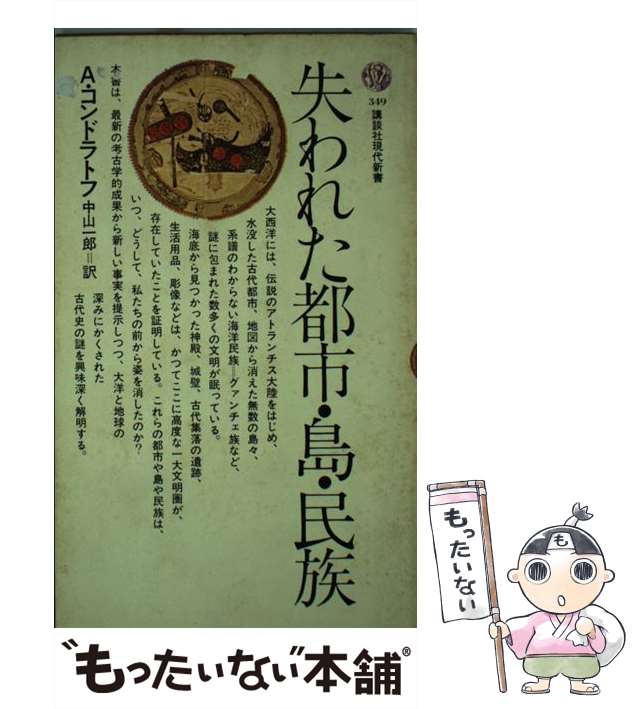 349
講談社現代新書
失われた都市・島・民族
大西洋には、伝説のアトランチス大陸をはじめ、
水没した古代都市、地図から消えた無数の島々、
系譜のわからない海洋民族＝グァンチェ族など、
謎に包まれた数多くの文明が眠っている。
海底から見つかった神殿、城壁、古代集落の遺跡、
生活用品、彫像などは、かつてここに高度な一大文明圏が、
存在していたことを証明している。これらの都市や島や民族は、
いつ、どうして、私たちの前から姿を消したのか?
本書は、最新の考古学的成果から新しい事実を提示しつつ、大洋と地球の
深みにかくされた
古代史の謎を興味深く解明する。
A・コンドラトフ
中山一郎＝訳
もったいない
“もったいない”本舗®